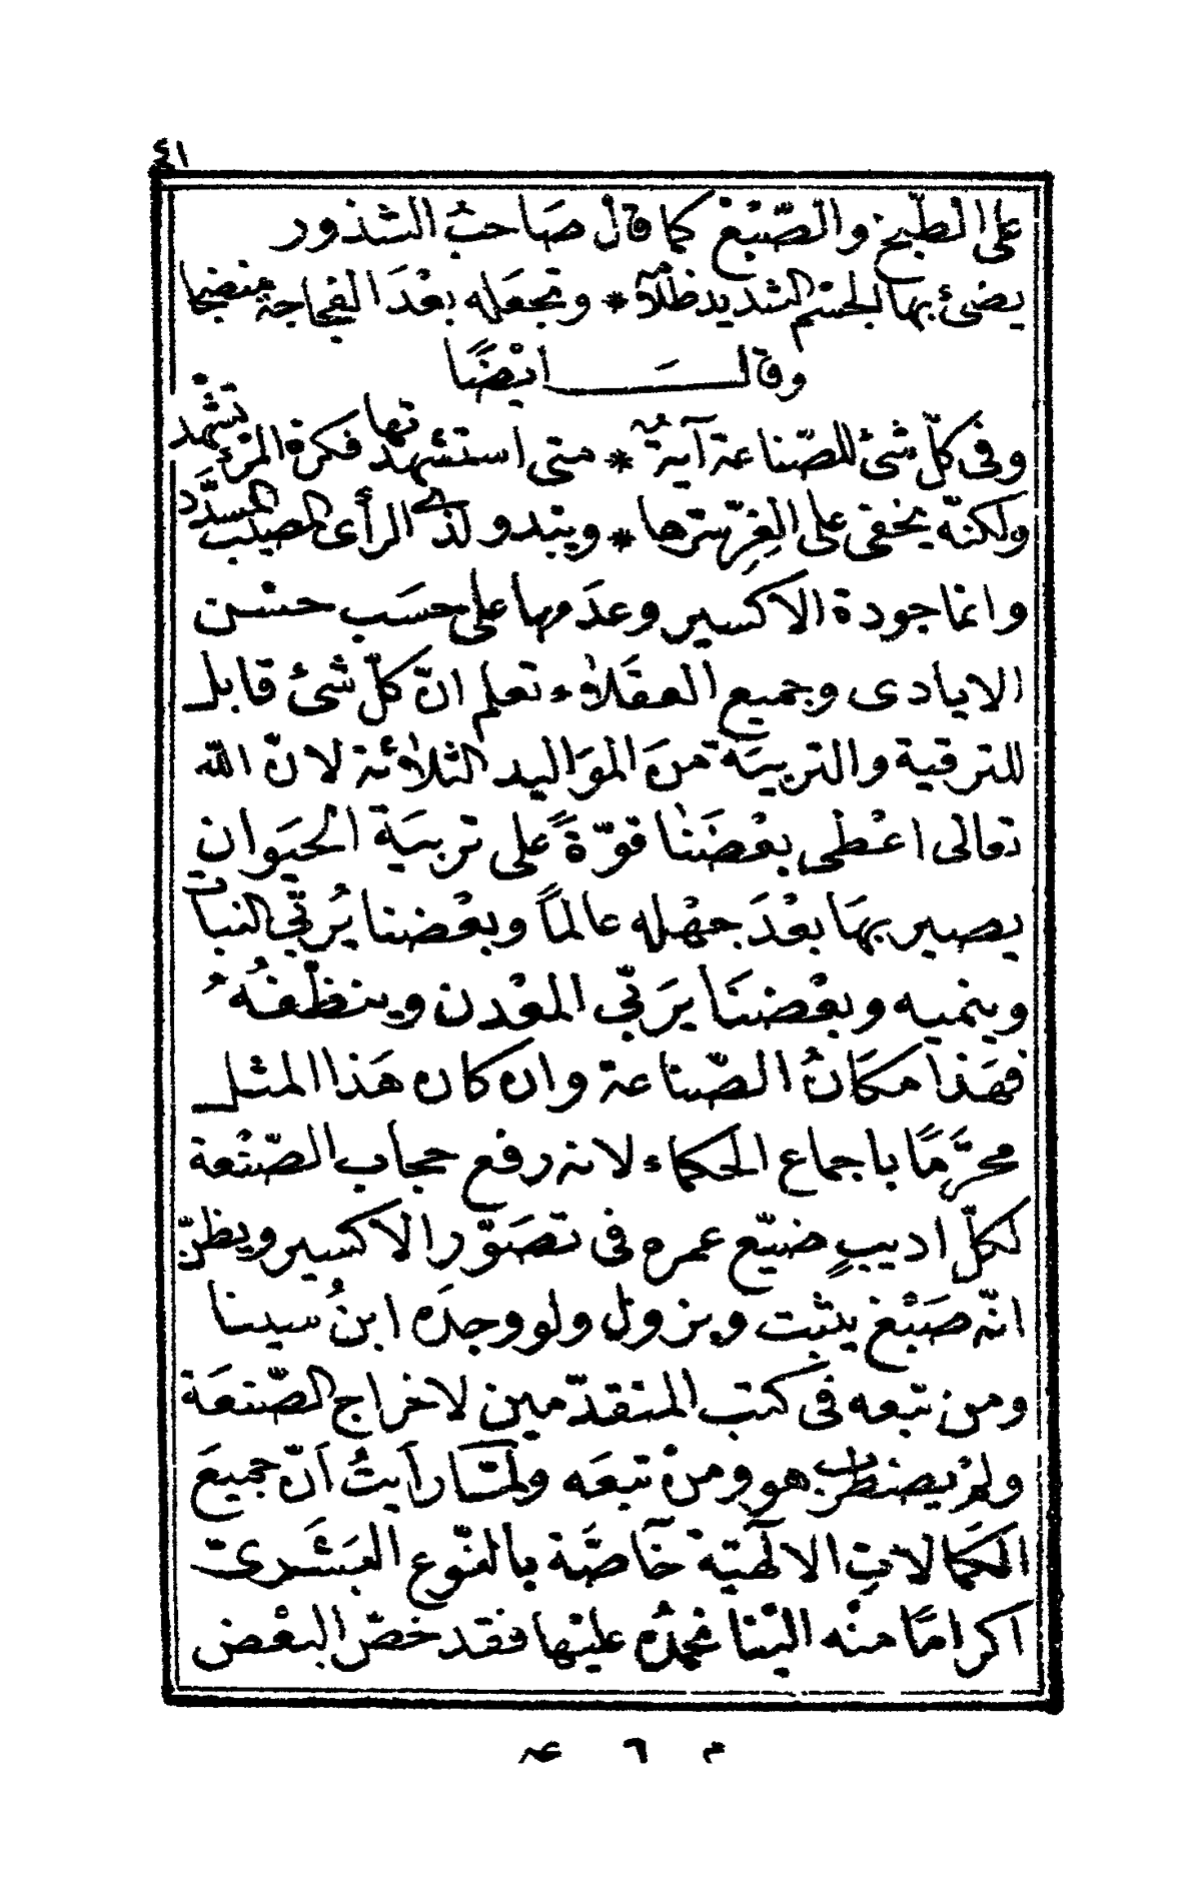 ٤١
على الطبخ والصّبغ كما قال صَاحبُ الشذور
يضئ بها الجسْم الشديد ظلامُه * وتجعَله بعْدَ الفجاجة منضجا
وقالَ ايْضًا
وفى كلّ شئ للصّناعة آيةٌ * متى استشهدتها فكرة المرْء تشْهد
ولكنّه يخفى على الغِرّ سترها * ويبْدو لذى الرأى المصيب المسدَّد
وانما جودة الاكسير وعدَمها على حسَب حسْن
الايادى وجميع العقَلاء تعلم انّ كلّ شئ قابل
للترقية والتربيَة منَ الموَاليد الثلاثة لانّ الله
تعالى اعْطى بعْضَنا قوّةً على تربيَة الحيَوان
يصير بهَا بعْدَ جهْله عالمًا وبعْضنا يُربّي النبات
وينميه وبعْضنَا يرَبّي المعْدن وينظّفُهُ
فهَذا مكَانُ الصّناعة وان كان هَذا المثل
محرَّمًا باجماع الحكماء لانه رفع حجاب الصّنْعة
لكلّ اديبٍ ضيّع عمره فى تصَوّر الاكسير ويظنّ
انّه صَبْغ يثْبت ويزول ولو وجدَه ابنُ سينا
ومن تبعه فى كتب المتقدّمين لاخراج الصّنعَة
ولمْ يضطرب هو ومنْ تبعَه ولمّا رأيتُ أنّ جميعَ
الكمَالاتِ الالهيّة خاصَّة بالنّوع البَشَرىّ
اكرامًا منْه اليْنا نحمدُه عليْها فقد خصّ البعْض
م ٦ عه